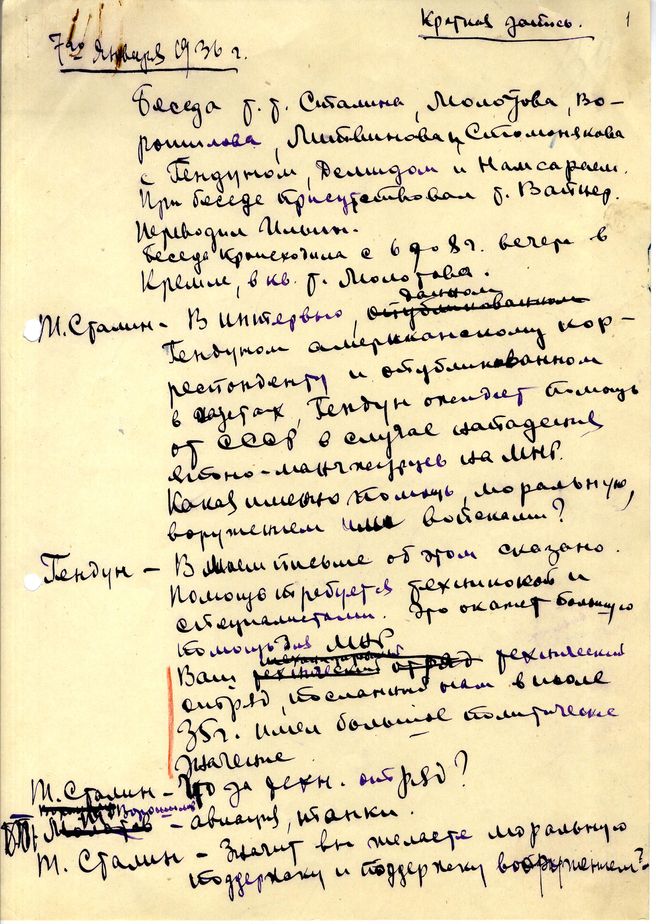 Краткая запись. 1
7го января 1936 г.
Беседа т. т. Сталина, Молотова, Во-
рошилова, Литвинова и Стомонякова
с Гендуном, Демидом и Намсараем.
При беседе присутствовал т. Вайнер.
Переводил Ильин.
Беседа происходила с 6 до 8 ч. вечера в
Кремле, в кв. т. Молотова.
Т. Сталин – В интервью, данном
Гендуном американскому кор-
респонденту и опубликованном
в газетах, Гендун ожидает помощь
от СССР в случае нападения
японо-манчжурцев на МНР.
Какая именно помощь, моральную,
вооружением или войсками?
Гендун – В моем письме об этом сказано.
Помощь требуется техникой и
специалистами. Это окажет большую
помощь для МНР
Ваш технический
отряд, посланный нам в июле
35 г. имел большое политическое
значение.
Т. Сталин – Что за техн. отряд?
Ворошилов – авиация, танки.
Т. Сталин – Значит вы желаете моральную
поддержку и поддержку вооружением? –